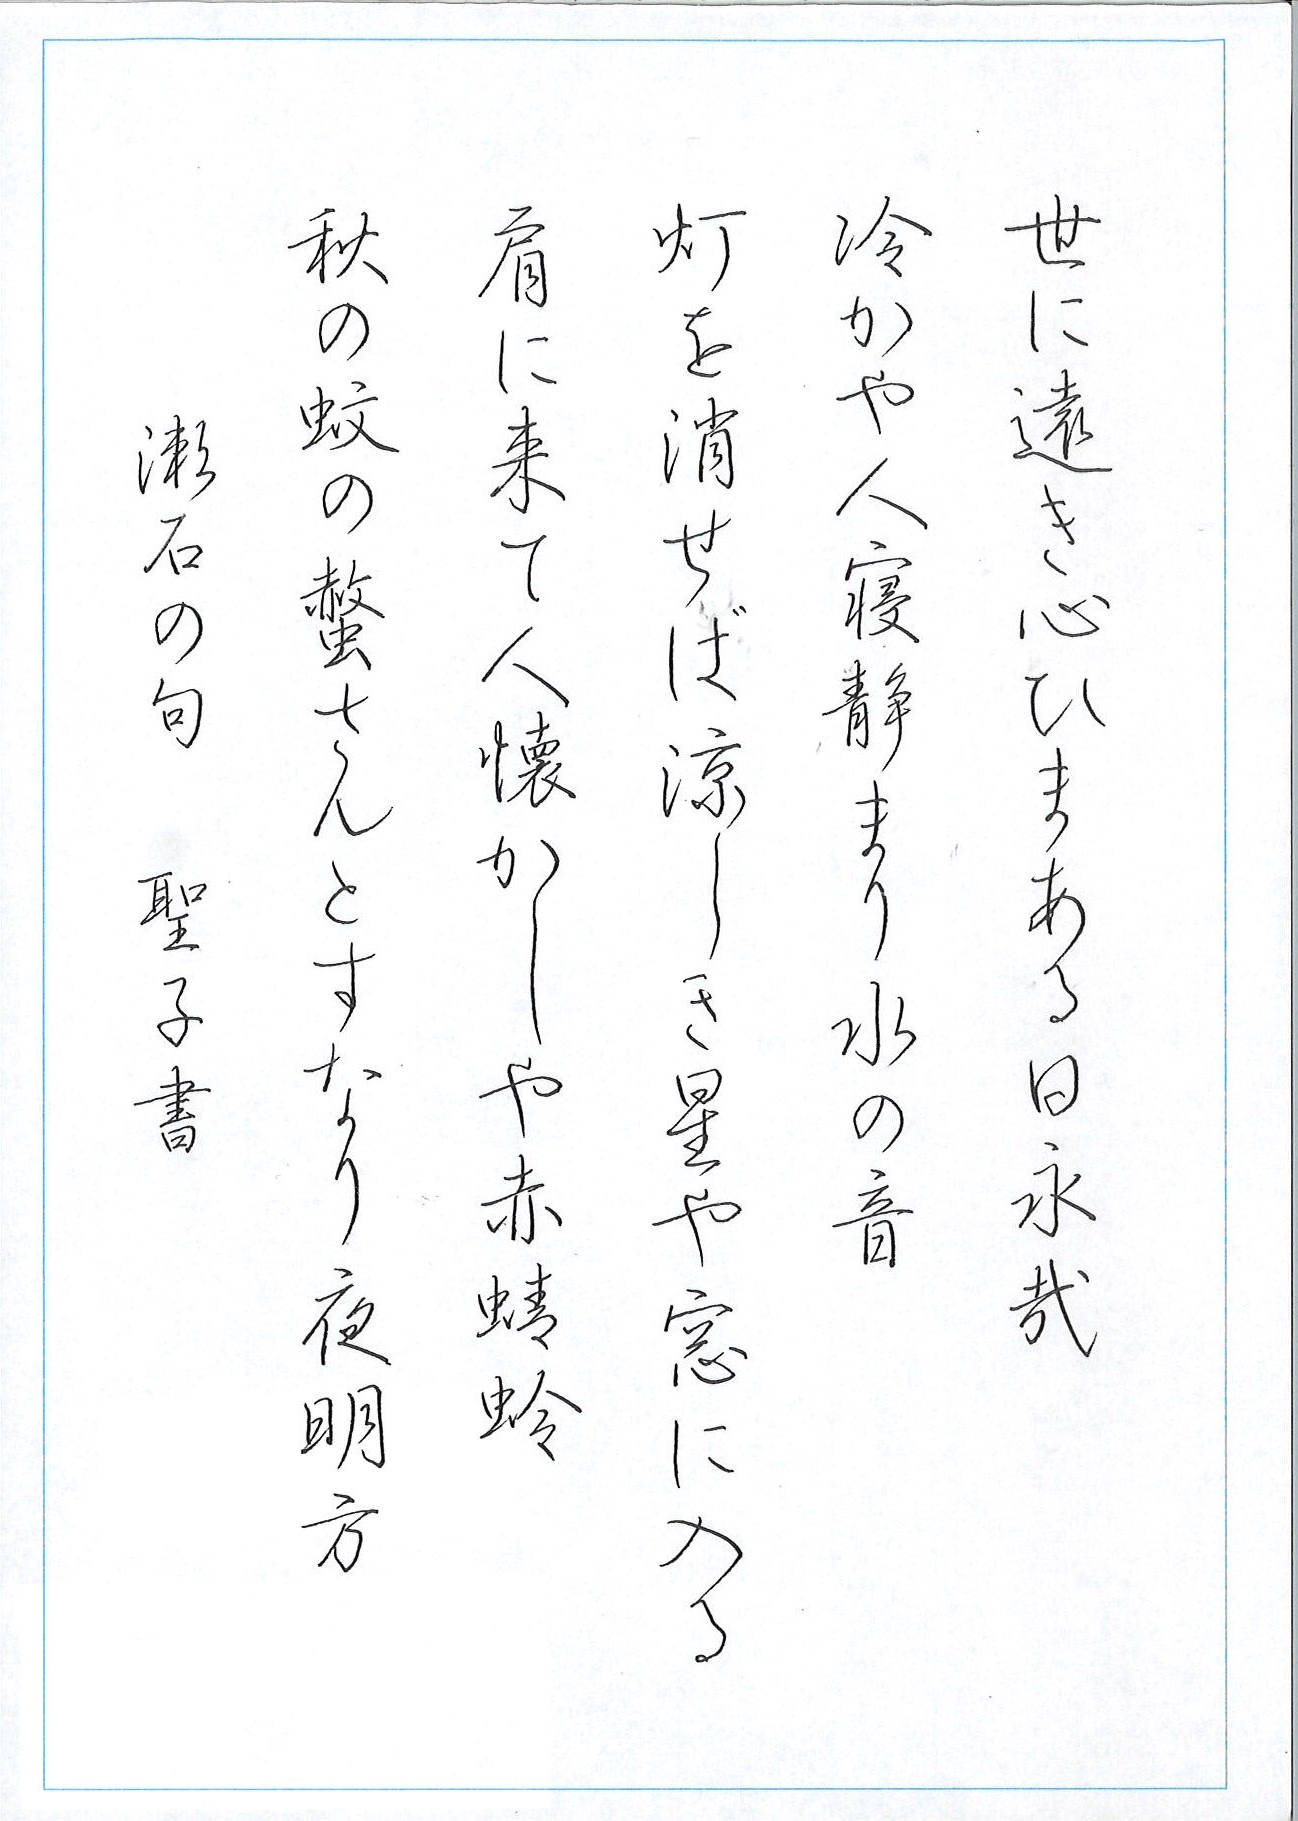 世に遠き心ひまある日永哉
冷かや人寝静まり水の音
灯を消せば涼しき星や窓に入る
肩に来て人懐かしや赤蜻蛉
秋の蚊の螫さんとすなり夜明方
漱石の句 聖子書